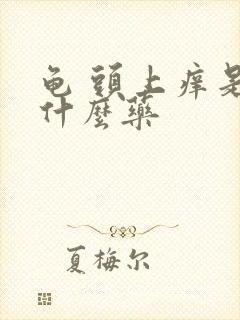 龟头上痒是
什麼藥
夏梅尔